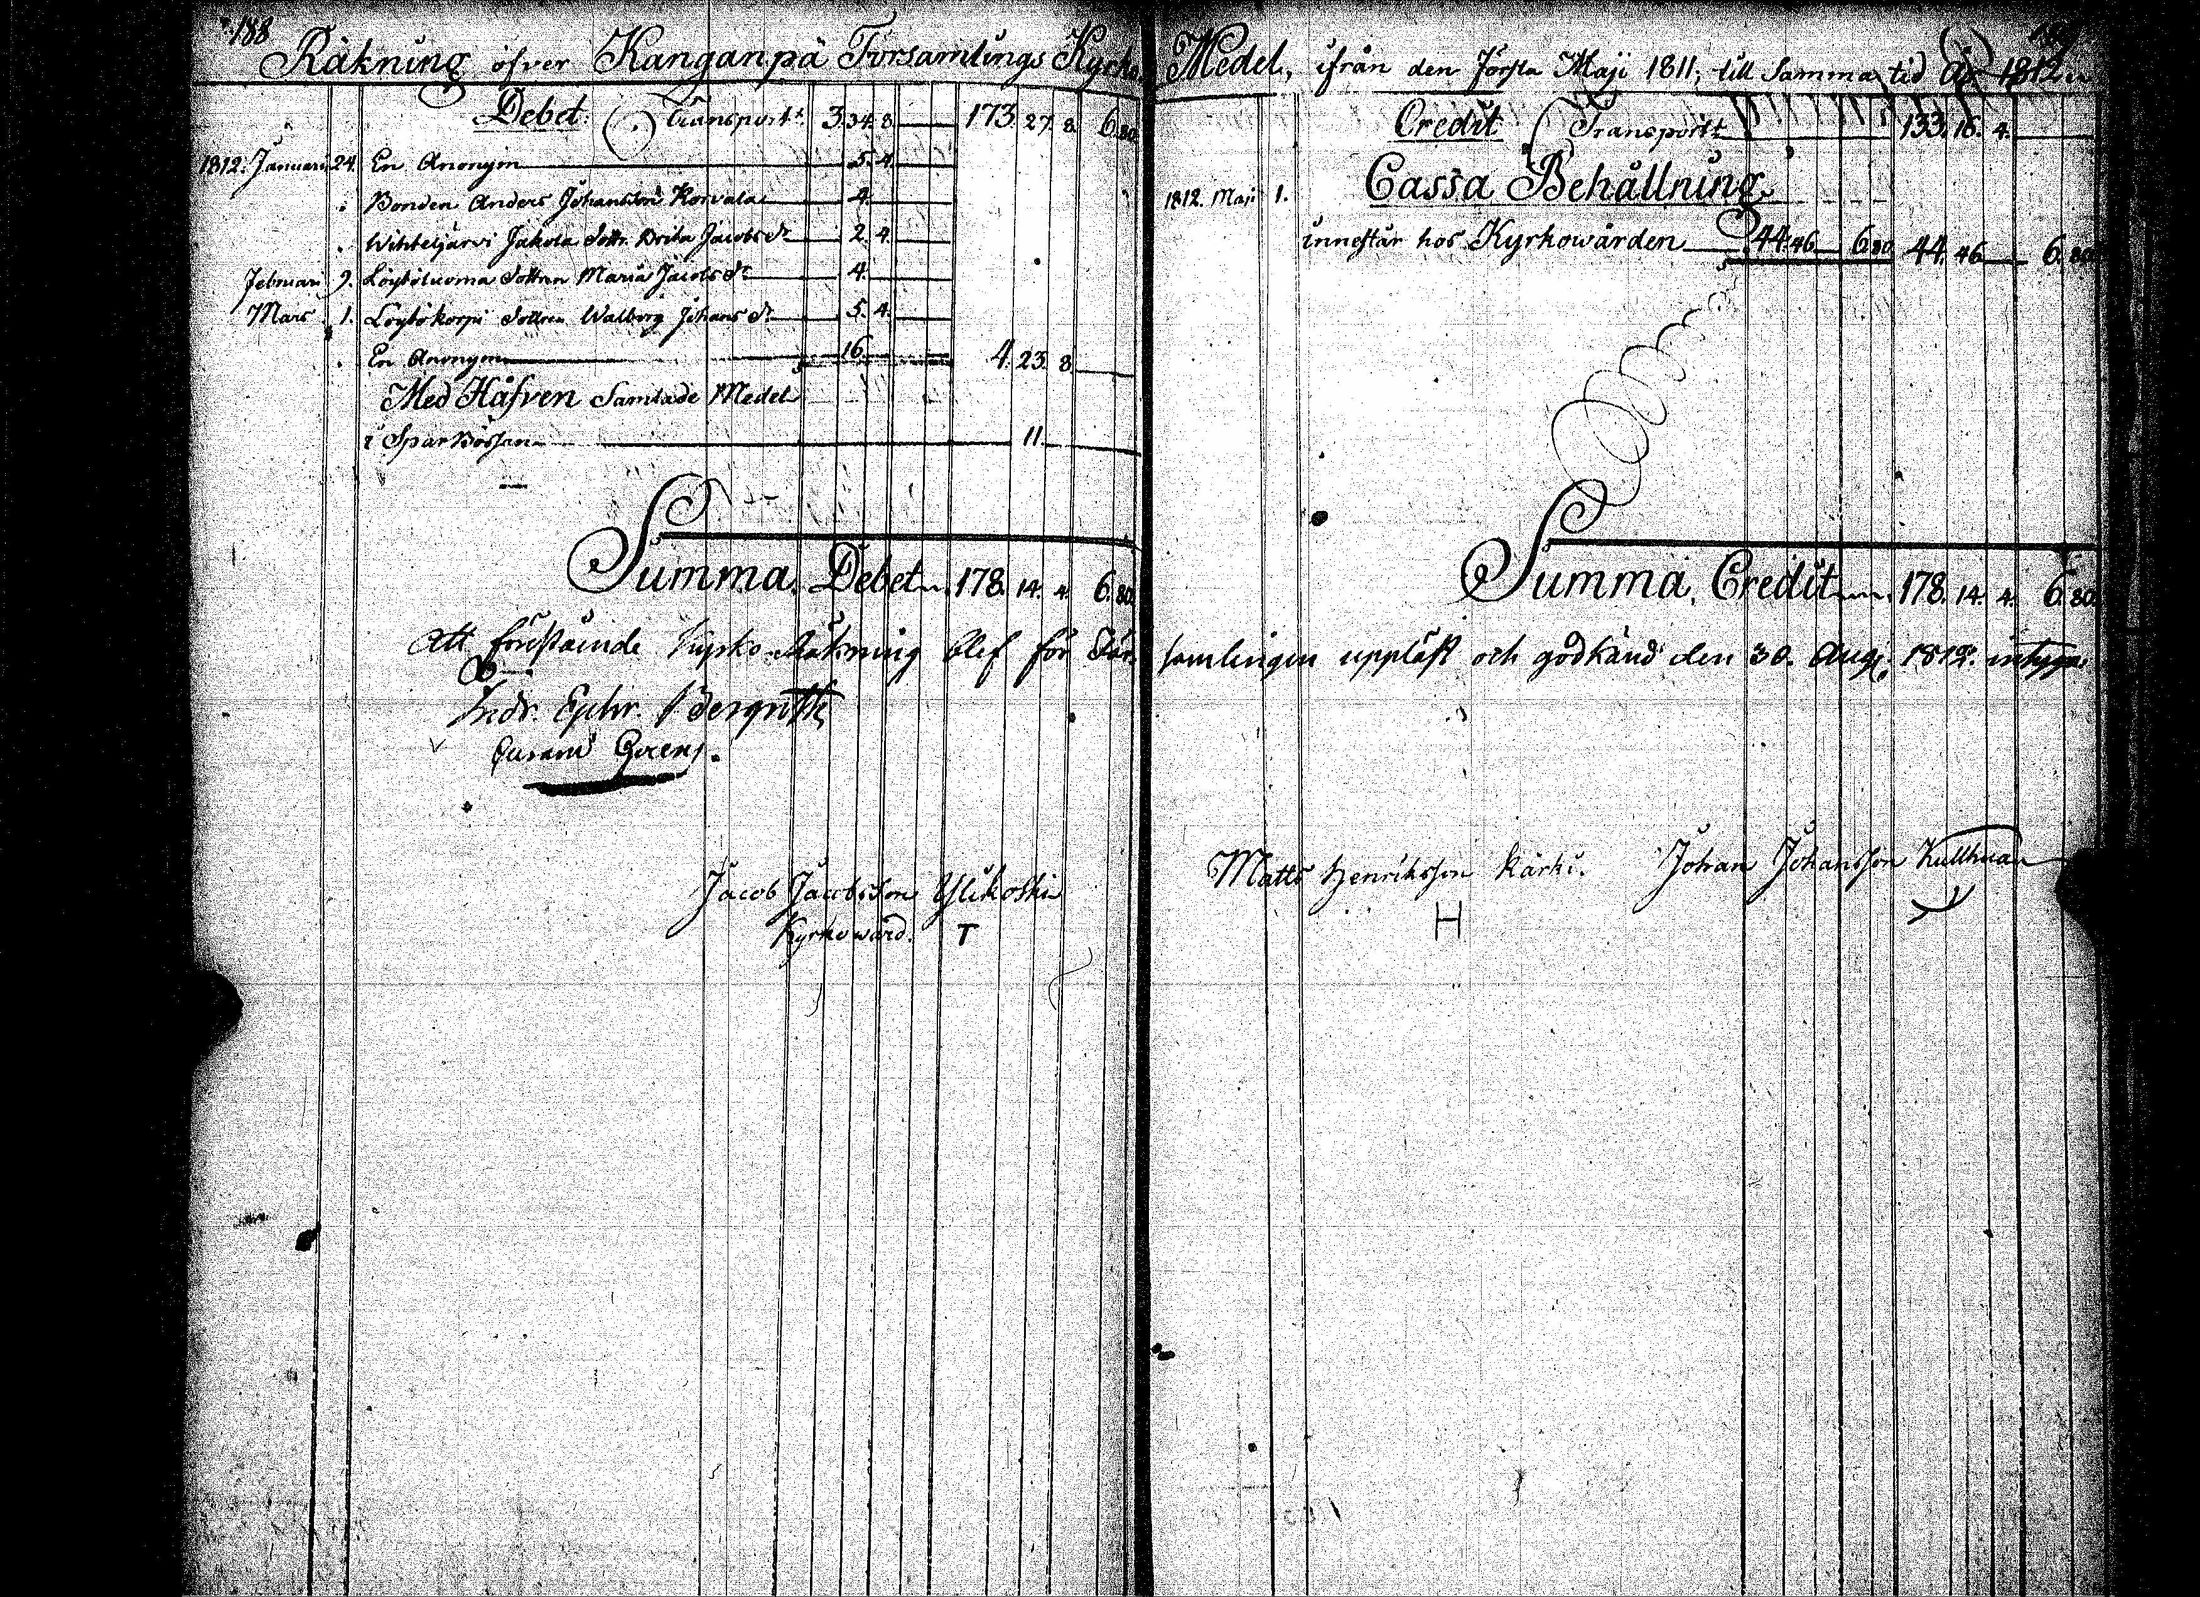 188
Räkning öfver Kanganpä Församlings Kyrko
Debet. Transport 3. 34. 8 173. 27. 8. 6. 80.
1812. Januari 24. En Anonym 5. 4.
Bonden Anders Johansson Korvala 4.
Wihteljärvi Jakola Dottr. Brita Jacobsdr 2. 4.
Februari 9. Löyböluoma Dottren Maria Jacobsdr 4.
Mars 1. Löybökorpi Dottren Walborg Johansdr 5. 4.
En Anonym 16. 4. 23. 8
Med Håfven Samlade Medel
i Sparbössan 11.
Summa Debet 178. 14. 4. 6. 80.
Att förestående Kyrko-Räkning blef för För-
Jacob Jacobsson Ylikoski
Kyrkowärd. T
189
Medel, ifrån den Första Maji 1811, till Samma tid År 1812
Credit Transport 133. 16. 4.
Cassa Behållning
1812. Maji 1.
innestår hos Kyrkowärden 44. 46 6. 80. 44. 46 6. 80.
Summa Credit 178. 14. 4. 6. 80.
samlingen uppläst och godkänd den 30. Aug. 1812. intyga
Matts Henriksson Kärki. Johan Johansson
H